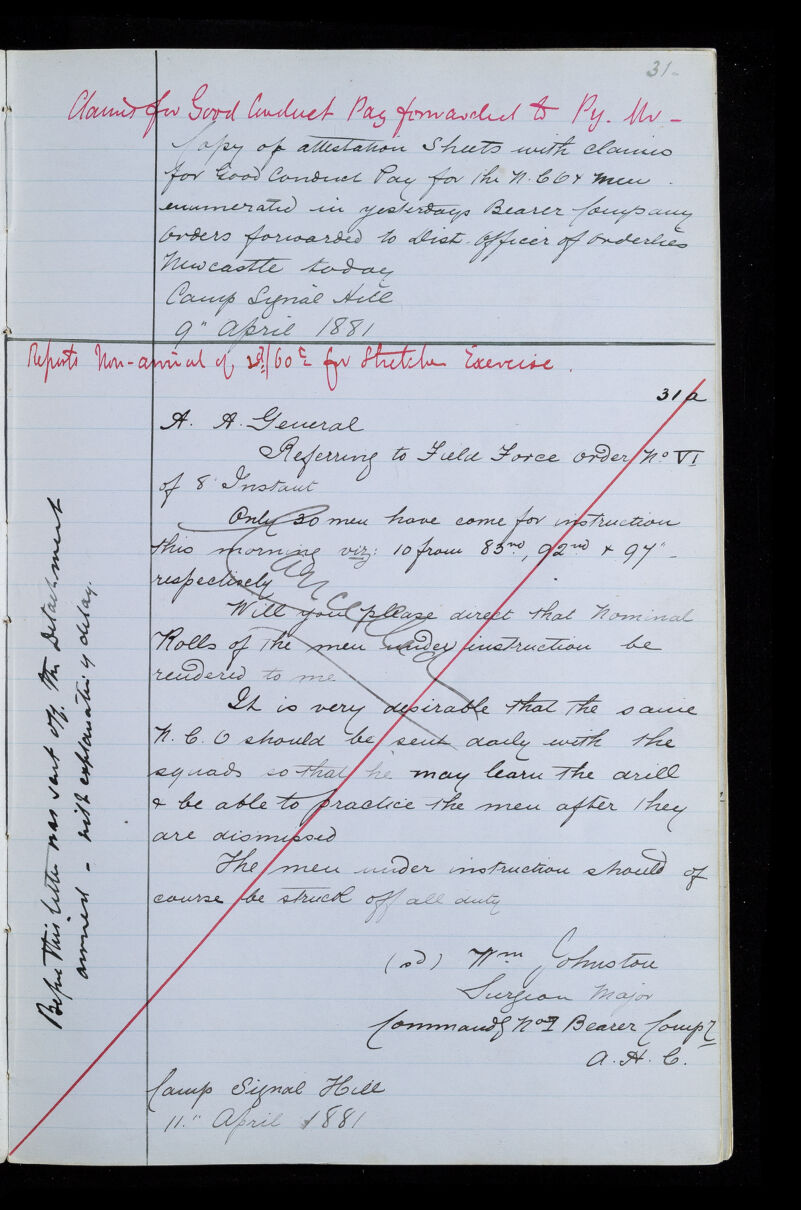 31-
Claims for Good Conduct Pay forwarded to Py. Mr -
Copy of attestation Sheets with claims
for Good Conduct Pay for the N.C.O & men
enumerated in yesterdays Bearer Company
orders forwarded to Dist. officer of orderlies
Newcastle today
Camp Signal Hill
9" April 1881
Reports Non-arrival of 2d/60th for Stretcher Exercise.
31/a
A. A. General
Referring to Field Force order No VI
of 8" Instant
Only 30 men have come for instruction
this morning viz: 10 from 83rd, 92nd & 97"-
respectively
Cancelled
Will you please direct that Nominal
Rolls of the men under instruction be
rendered to me
It is very desirable that the same
N.C.O should be sent daily with the
squads so that he may learn the drill
& be able to practice the men after they
are dismissed
The men under instruction should of
course be struck off all duty
(sd) Wm Johnston
Surgeon Major
Commandg No 1 Bearer Compy
A.H.C.
Camp Signal Hill
11." April 1881
Before this letter was sent off. the Detachment
arrived - with explanation of delay.